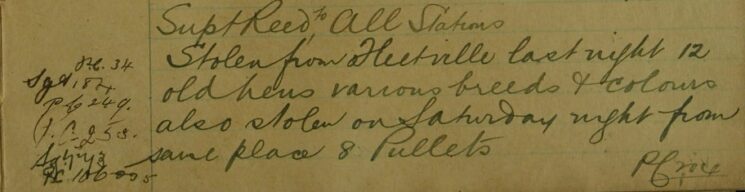 Supt Reed, to All Stations
Stolen from Fleetville last night 12
old hens various breeds & colours
also stolen on Saturday night from
same place 8 Pullets
34
Sgt
P.C. 249.
P.C. 253.